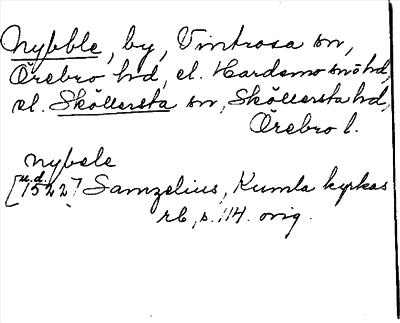 Nybble, by, Vintrosa sn,
Örebro hd, el. Hardemo sn o hd,
el. Sköllersta sn, Sköllersta hd,
Örebro l.
nybele
[u.d. 1522] Samzelius, Kumla kyrkas
rb, s. 114. orig.